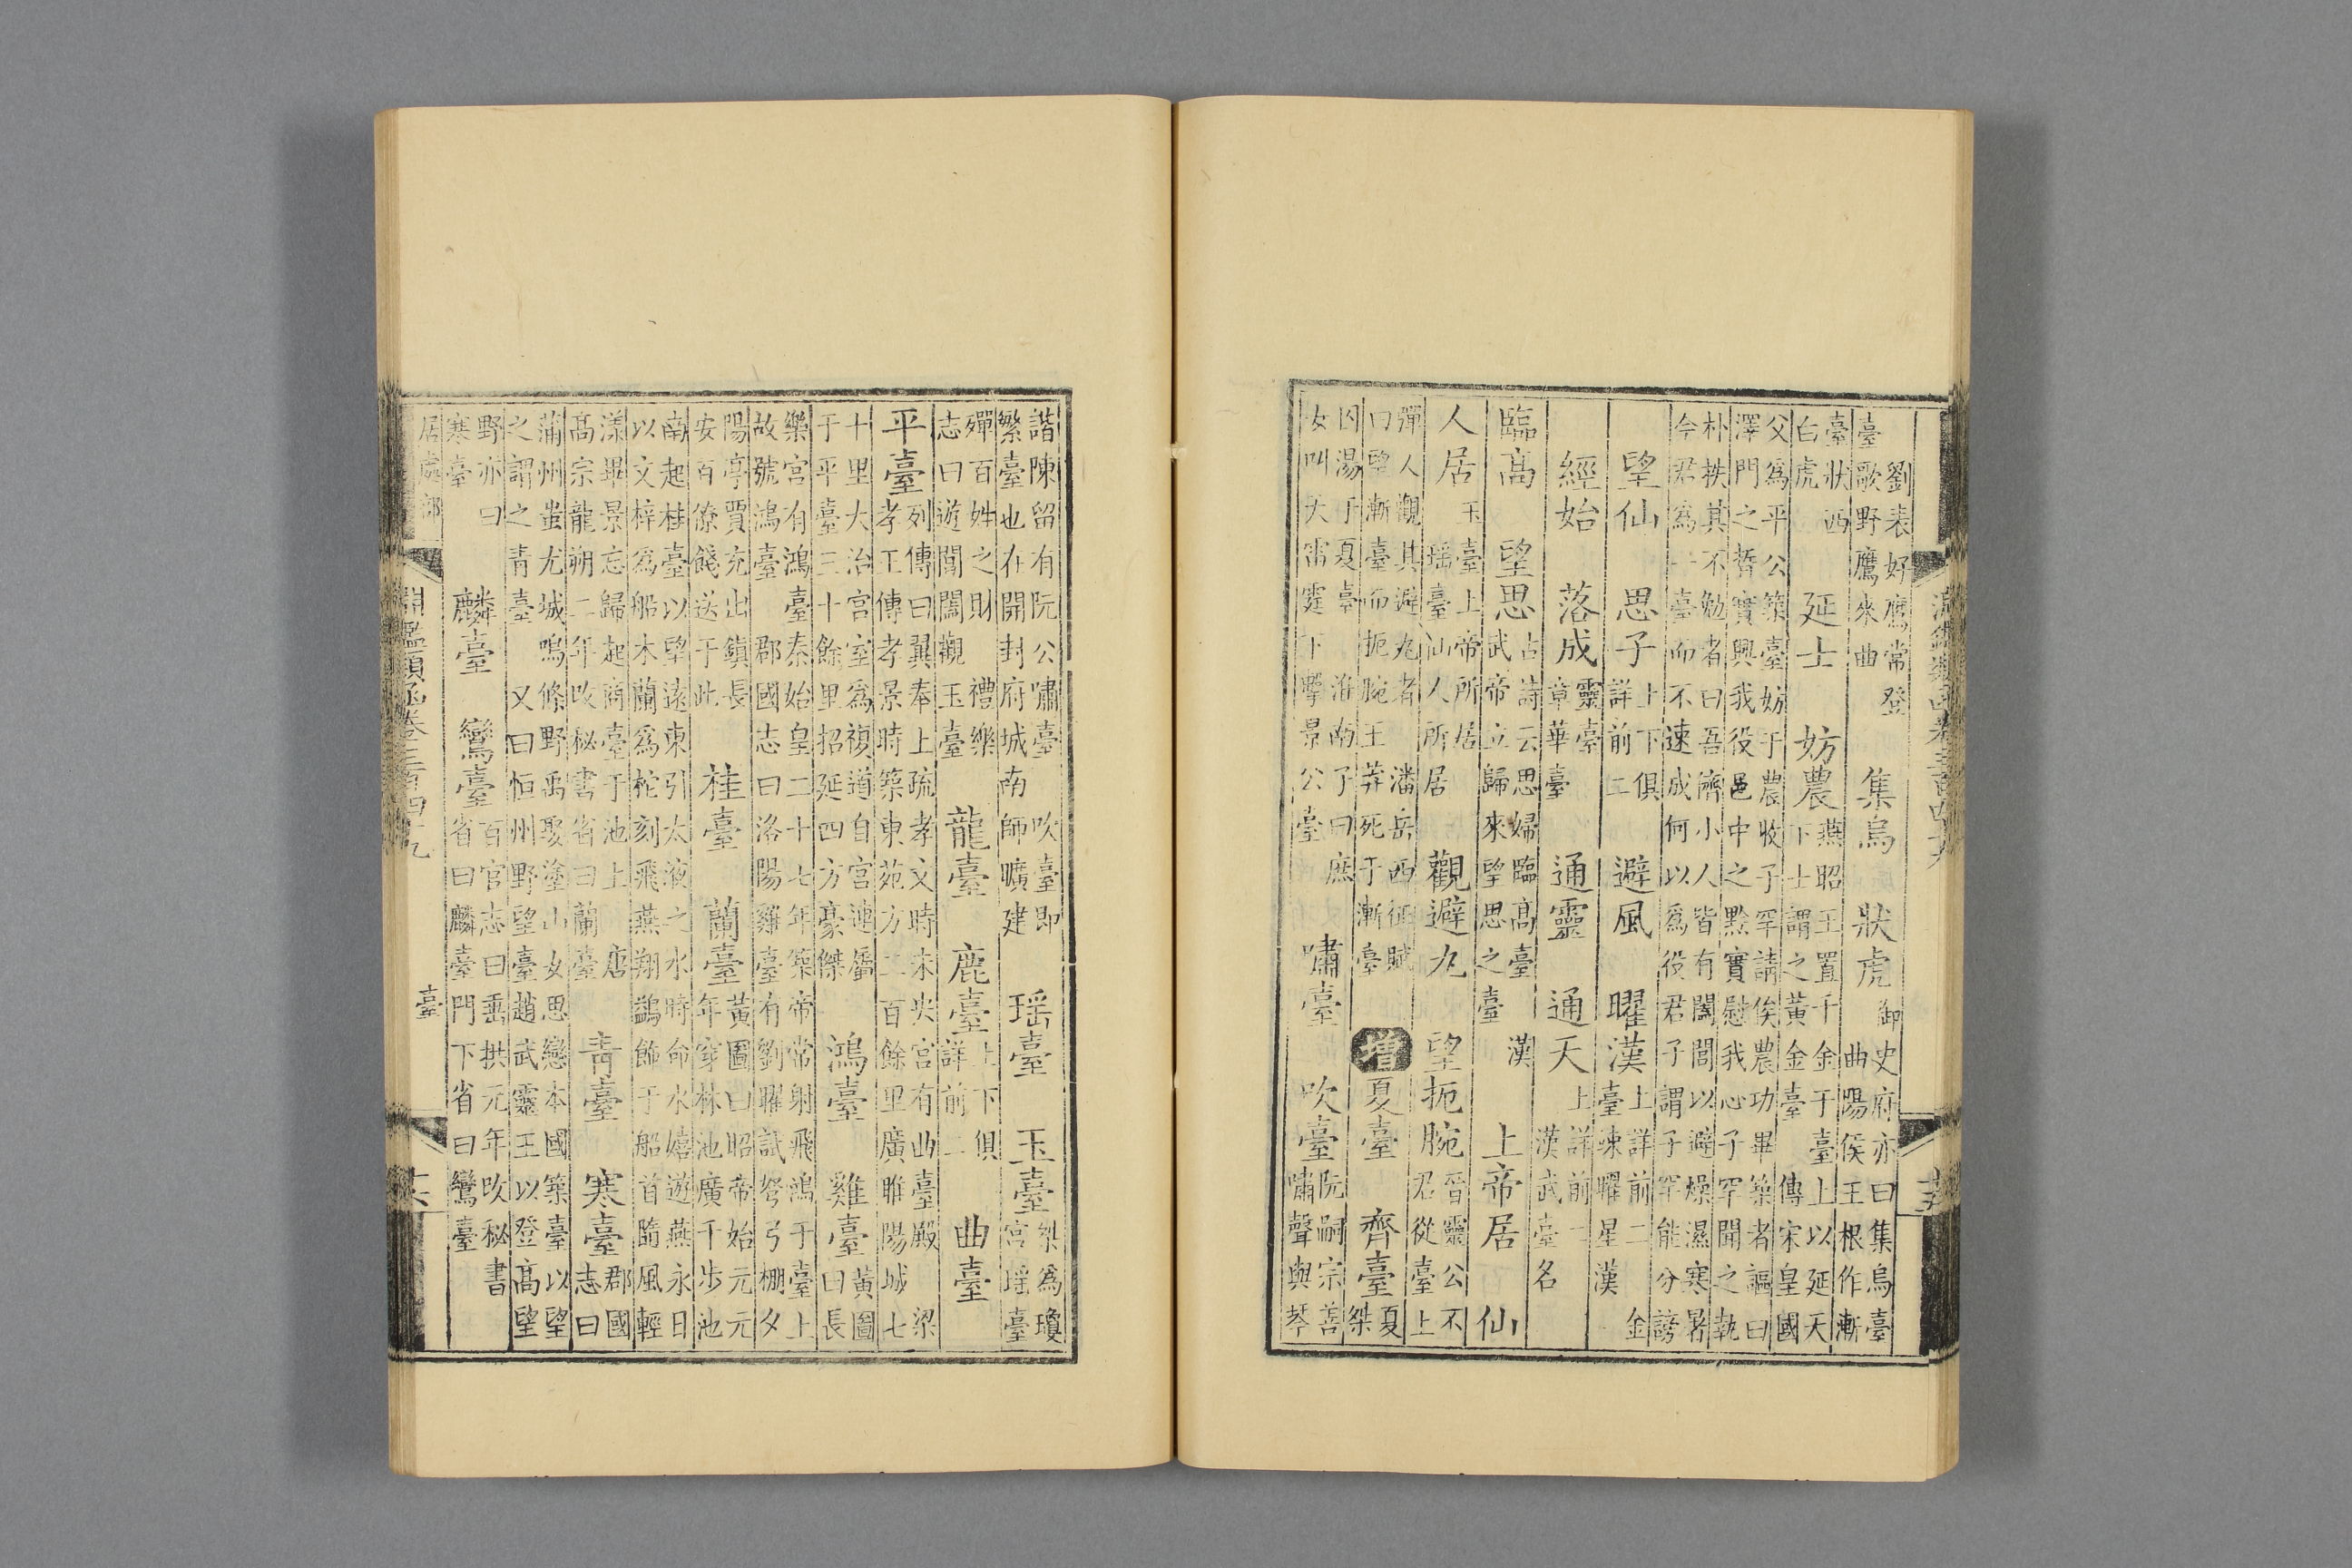 臺劉表好鷹常登歌野鷹來曲　集烏　狀虎御史府亦曰集烏臺曲陽侯王根作漸
臺狀西白虎　延士　妨農燕昭王置千金于臺上以延天下士謂之黃金臺　傳宋皇國
父爲平公築臺妨于農收子罕請俟農功畢築者謳曰澤門之晳實興我役邑中之黔實慰我心子罕聞之執
朴抶其不勉者曰吾儕小人皆有闔閭以避燥濕寒暑今君爲一臺而不速成何以爲役君子謂子罕能分謗
望仙　思子上下俱詳前二　避風　曜漢上詳前二　金臺竦曜星漢
經始　落成靈臺章華臺　通靈　通天上詳前一漢武臺名
臨高　望思占詩云思婦臨高臺　漢武帝立歸來望思之臺　上帝居　仙
人居玉臺上帝所居瑤臺仙人所居　觀避丸　望扼腕晉靈公不君從臺上
彈人觀其避丸者　潘岳西征賦曰望漸臺而扼腕王莽死于漸臺　增　夏臺　齊臺夏桀
囚湯于夏臺　淮南子曰庶女叫天雷霆下擊景公臺　嘯臺　吹臺阮嗣宗善嘯聲與琴
淵鑑類函卷三百四十九
十五
諧陳留有阮公嘯臺　吹臺即繁臺也在開封府城南師曠建　瑤臺　玉臺桀爲瓊宮瑤臺
殫百姓之財　禮樂志曰遊閶闔觀玉臺　龍臺　鹿臺上下俱詳前二　曲臺
平臺列傳曰翼奉上疏孝文時未央宮有曲臺殿　梁孝王傳孝景時築東苑方二百餘里廣睢陽城七
十里大治宮室爲複道自宮連屬于平臺三十餘里招延四方豪傑　鴻臺　雞臺黃圖曰長
樂宮有鴻臺秦始皇二十七年築帝常射飛鴻于臺上故號鴻臺　郡國志曰洛陽雞臺有劉曜試弩弓棚夕
陽亭賈充出鎮長安百僚餞送于此　桂臺　蘭臺黃圖曰昭帝始元元年穿林池廣千步池
南起桂臺以望遠東引太液之水時命水嬉遊燕永日以文梓爲船木蘭爲柁刻飛燕翔鷁飾于船首隨風輕
漾畢景忘歸起商臺于池上　唐高宗龍朔二年改秘書省曰蘭臺　青臺　寒臺郡國志曰
蒲州蚩尤城鳴條野禹娶塗山女思戀本國築臺以望之謂之青臺　又曰恒州野望臺趙武靈王以登高望
野亦曰寒臺　麟臺　鸞臺百官志曰垂拱元年改秘書省曰麟臺門下省曰鸞臺
居處部　臺
淵鑑類函卷三百四十九
十六